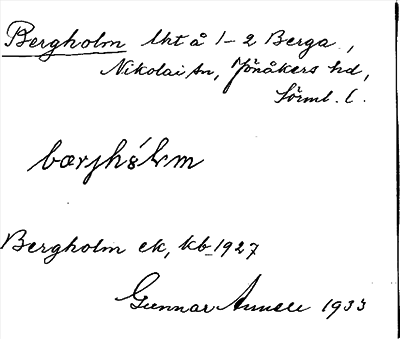 Bergholm lht å 1-2 Berga,
Nikolai sn, Jönåkers hd,
Sörml. l.
bærjhólm
Bergholm ek, kb 1927
Gunnar 1933